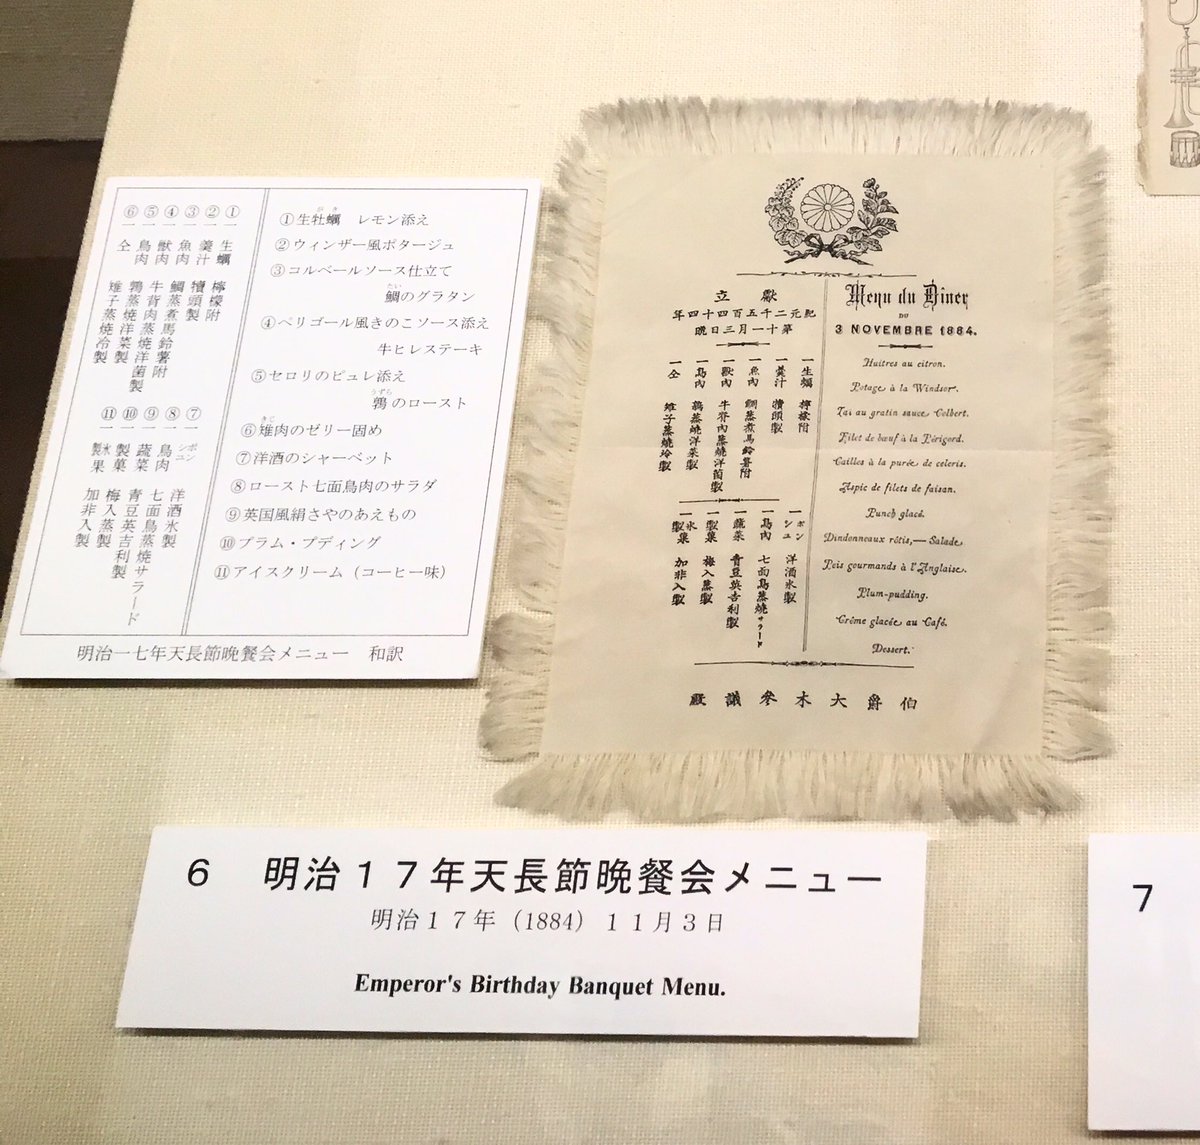 ①一 生蠣 檸檬附
②一 羹汁 犢頭製
③一 魚肉 鯛蒸煮馬鈴薯附
④一 獣肉 牛背肉蒸焼洋菌製
⑤一 鳥肉 鶉蒸焼洋菜製
⑥一 仝 雉子蒸焼冷製
⑦一 ポンシユ 洋酒氷製
⑧一 鳥肉 七面鳥蒸焼サラード
⑨一 蔬菜 青豆英吉利製
⑩一 製菓 梅入蒸製
⑪一 氷製果 加非入製
①生牡蠣 レモン添え
②ウィンザー風ポタージュ
③コルベールソース仕立て
鯛のグラタン
④ペリゴール風きのこソース添え
牛ヒレステーキ
⑤セロリのピュレ添え
鶉のロースト
⑥雉肉のゼリー固め
⑦洋酒のシャーベット
⑧ロースト七面鳥肉のサラダ
⑨英国風絹さやのあえもの
⑩プラム・プディング
⑪アイスクリーム（コーヒー味）
明治一七年天長節晩餐会メニュー 和訳
獻立
紀元二千五百四十四年
第十一月三日晩
一生蠣 檸檬附
一羹汁 犢頭製
一魚肉 鯛蒸煮馬鈴薯附
一獸肉 牛脊肉蒸燒洋菌製
一鳥肉 鶉蒸燒洋菜製
一仝 雉子蒸燒冷製
一ポンシユ 洋酒氷製
一鳥肉 七面鳥蒸燒サラード
一蔬菜 青豆英吉利製
一製菓 梅入蒸製
一氷製菓 加非入製
Menu du Diner
DU
3 NOVEMBRE 1884.
Huitres au citron.
Potage à la Windsor.
Tai au gratin sauce Colbert.
Filet de bœuf à la Périgord.
Cailles à la purée de celeris.
Aspic de filets de faisan.
Punch glacé.
Dindonneaux rôtis,— Salade.
Pois gourmands à l'Anglaise.
Plum-pudding.
Crême glacée au Café.
Dessert.
伯爵大木參議殿
6 明治１７年天長節晩餐会メニュー
明治１７年（1884）１１月３日
Emperor's Birthday Banquet Menu.
7